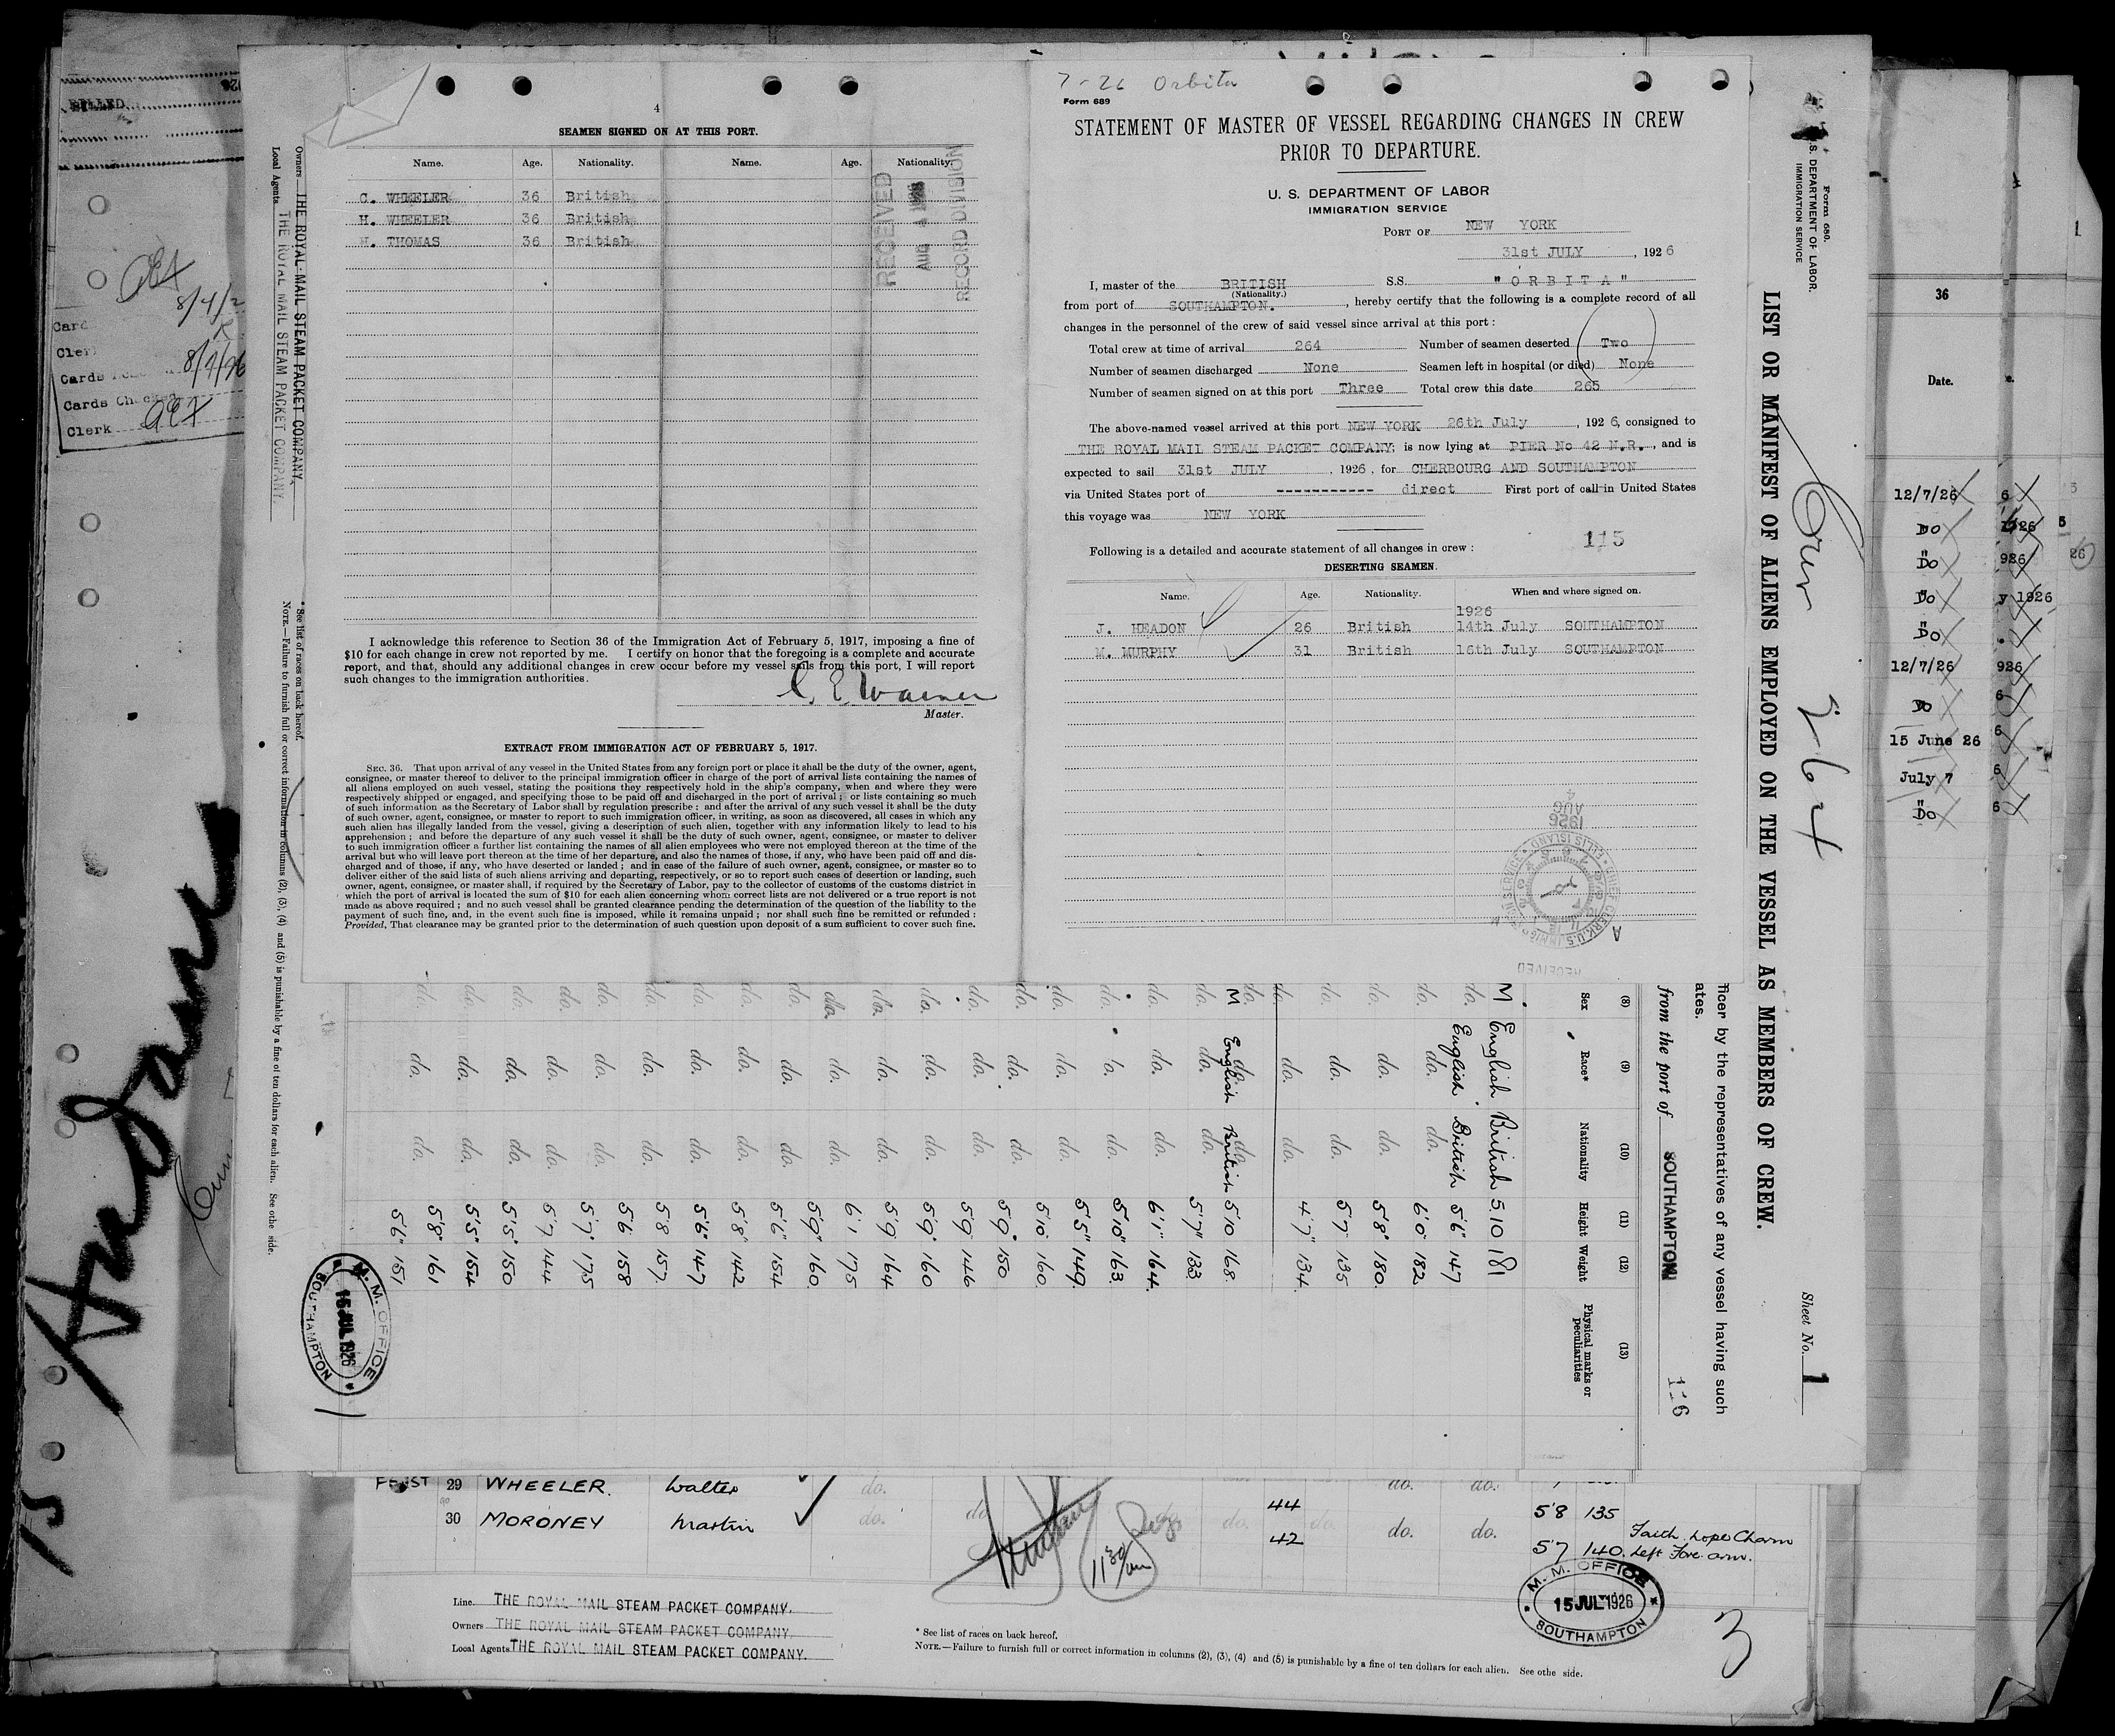 4
SEAMEN SIGNED ON AT THIS PORT.
Name. Age. Nationality. Name. Age. Nationality.
C. WHEELER 36 British
H. WHEELER 36 British
H. THOMAS 36 British
RECEIVED
AUG 4
RECORD DIVISION
I acknowledge this reference to Section 36 of the Immigration Act of February 5, 1917, imposing a fine of
$10 for each change in crew not reported by me. I certify on honor that the foregoing is a complete and accurate
report, and that, should any additional changes in crew occur before my vessel sails from this port, I will report
such changes to the immigration authorities.
Master.
EXTRACT FROM IMMIGRATION ACT OF FEBRUARY 5, 1917.
SEC. 36. That upon arrival of any vessel in the United States from any foreign port or place it shall be the duty of the owner, agent,
consignee, or master thereof to deliver to the principal immigration officer in charge of the port of arrival lists containing the names of
all aliens employed on such vessel, stating the positions they respectively hold in the ship's company, when and where they were
respectively shipped or engaged, and specifying those to be paid off and discharged in the port of arrival; or lists containing so much
of such information as the Secretary of Labor shall by regulation prescribe; and after the arrival of any such vessel it shall be the duty
of such owner, agent, consignee, or master to report to such immigration officer, in writing, as soon as discovered, all cases in which any
such alien has illegally landed from the vessel, giving a description of such alien, together with any information likely to lead to his
apprehension; and before the departure of any such vessel it shall be the duty of such owner, agent, consignee, or master to deliver
to such immigration officer a further list containing the names of all alien employees who were not employed thereon at the time of the
arrival but who will leave port thereon at the time of her departure, and also the names of those, if any, who have been paid off and dis-
charged and of those, if any, who have deserted or landed; and in case of the failure of such owner, agent, consignee, or master so to
deliver either of the said lists of such aliens arriving and departing, respectively, or so to report such cases of desertion or landing, such
owner, agent, consignee, or master shall, if required by the Secretary of Labor, pay to the collector of customs of the customs district in
which the port of arrival is located the sum of $10 for each alien concerning whom correct lists are not delivered or a true report is not
made as above required; and no such vessel shall be granted clearance pending the determination of the question of the liability to the
payment of such fine, and, in the event such fine is imposed, while it remains unpaid; nor shall such fine be remitted or refunded:
Provided, That clearance may be granted prior to the determination of such question upon deposit of a sum sufficient to cover such fine.
7-26 Orbita
Form 689
STATEMENT OF MASTER OF VESSEL REGARDING CHANGES IN CREW
PRIOR TO DEPARTURE.
U. S. DEPARTMENT OF LABOR
IMMIGRATION SERVICE
PORT OF NEW YORK
31st JULY, 1926
I, master of the BRITISH S.S. "ORBITA"
(Nationality.)
from port of SOUTHAMPTON., hereby certify that the following is a complete record of all
changes in the personnel of the crew of said vessel since arrival at this port:
Total crew at time of arrival 264 Number of seamen deserted Two
Number of seamen discharged None Seamen left in hospital (or died) None
Number of seamen signed on at this port Three Total crew this date 265
The above-named vessel arrived at this port NEW YORK 26th July, 1926, consigned to
THE ROYAL MAIL STEAM PACKET COMPANY; is now lying at PIER No 42 N.R., and is
expected to sail 31st JULY, 1926, for CHERBOURG AND SOUTHAMPTON
via United States port of ----------- direct First port of call in United States
this voyage was NEW YORK
Following is a detailed and accurate statement of all changes in crew: 115
DESERTING SEAMEN.
Name. Age. Nationality. When and where signed on.
1926
J. HEADON 26 British 14th July SOUTHAMPTON
M. MURPHY 31 British 16th July SOUTHAMPTON
AUG 4 1926
RECEIVED
Form 680.
U.S. DEPARTMENT OF LABOR.
IMMIGRATION SERVICE
LIST OR MANIFEST OF ALIENS EMPLOYED ON THE VESSEL AS MEMBERS OF CREW.
Crew 264
Sheet No. 1
ficer by the representatives of any vessel having such
ates.
from the port of SOUTHAMPTON
116
(8) (9) (10) (11) (12) (13)
Sex Race* Nationality Height Weight Physical marks or peculiarities
M English British 5.10 181
do. English British 5'6" 147
do. do. do. 6'0 182
do. do. 5'8" 180.
do. do. do. 5'7 135
do. do. do. 4'7" 134.
M English British 5'10 168.
do. do. do. 5'7" 133
do. do. do. 6'1" 164.
do. do. 5'10" 163
do. do. 5'5" 149.
do. do. do. 5'10 160.
do. do. do. 5'9" 150
do. do. do. 5'9 146
do. do. do. 5'9" 160
do. do. do. 5'9 164
do. do. do. 6'1 175
do. 5'9" 160.
do. do. do. 5'6" 154
do. do. do. 5'8" 142
do. do. do. 5'6" 147
do. do. do. 5'8 157.
do. do. do. 5'6 158
do. do. do. 5'7" 175
do. do. do. 5'7 144
do. do. do. 5'5" 150
do. do. do. 5'5" 154
do. do. do. 5'8" 161
5'6" 151
Owners THE ROYAL MAIL STEAM PACKET COMPANY.
Local Agents THE ROYAL MAIL STEAM PACKET COMPANY.
* See list of races on back hereof.
NOTE.—Failure to furnish full or correct information in columns (2), (3), (4) and (5) is punishable by a fine of ten dollars for each alien. See othe side.
M. M. OFFICE
15 JUL 1926
SOUTHAMPTON
29 WHEELER. Walter do. 44 do. do. 5'8 135
30 MORONEY Martin do. do. 42 do. do. 5'7 140. Faith, hope Charm
Left Fore arm.
11 30/am
Line. THE ROYAL MAIL STEAM PACKET COMPANY.
Owners THE ROYAL MAIL STEAM PACKET COMPANY.
Local Agents THE ROYAL MAIL STEAM PACKET COMPANY.
* See list of races on back hereof.
NOTE.—Failure to furnish full or correct information in columns (2), (3), (4) and (5) is punishable by a fine of ten dollars for each alien. See othe side.
M. M. OFFICE
15 JUL 1926
SOUTHAMPTON
3
36
Date.
12/7/26
Do
"Do
"Do
"Do
12/7/26
Do
15 June 26
July 7
"Do
1926
926
y 1926
926
Card
Cards
Cards Checked
Clerk
8/7/26
15